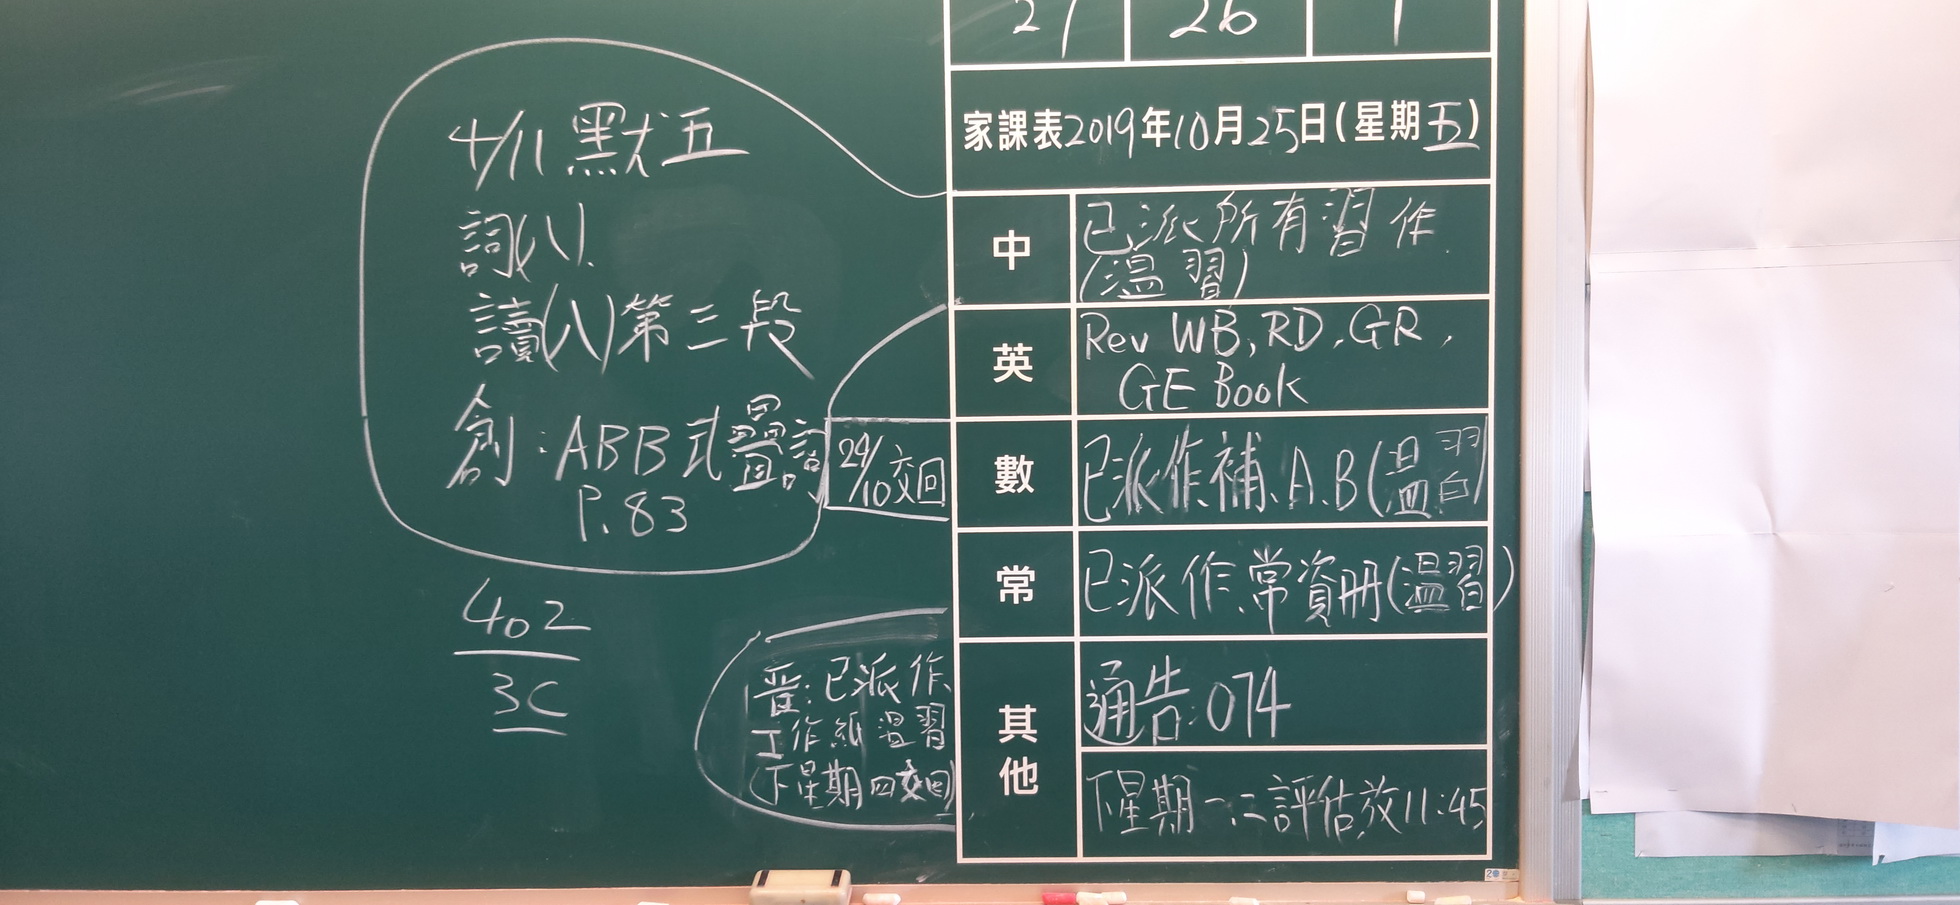 27 26 1
家課表2019年10月25日(星期五)
中
已派所有習作.
(温習)
英
Rev WB, RD, GR,
GE Book
29/10交回
數
已派作、補、A、B(温習)
常
已派作、常資冊(温習)
其他
通告:074
下星期一、二評估,放11:45
4/11 默五
詞(八).
讀(八)第三段
創:ABB式疊詞
P.83
402
3C
普:已派作、
工作紙温習
(下星期四交回)